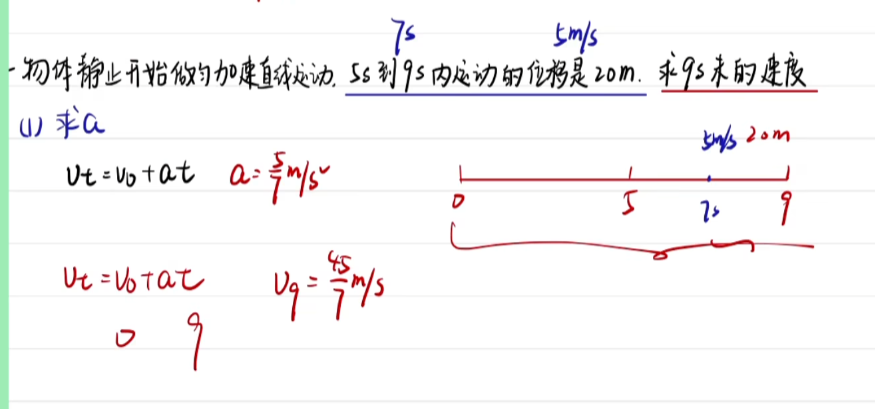 7s 5m/s
一物体静止开始做匀加速直线运动. 5s到9s内运动的位移是20m. 求9s末的速度
(1) 求a
5m/s 20m
Vt=V0+at a=5/7m/s²
0 5 7s 9
Vt=V0+at V9=45/7m/s
0 9